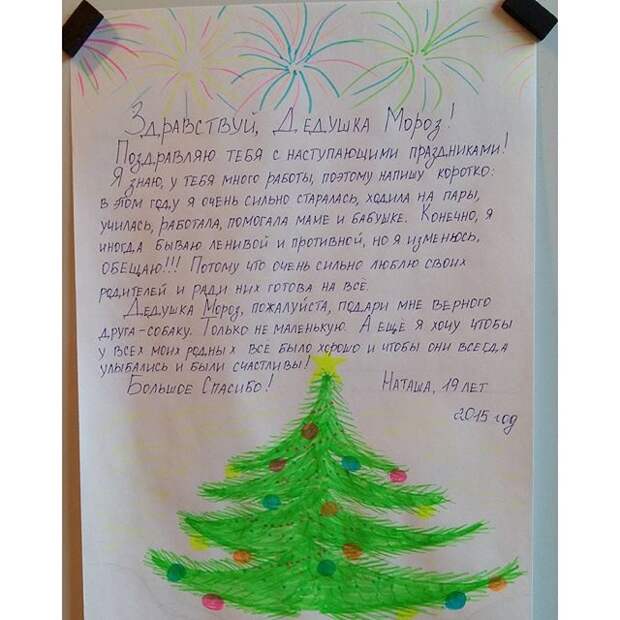 Здравствуй, Дедушка Мороз!
Поздравляю тебя с наступающими праздниками!
Я знаю, у тебя много работы, поэтому напишу коротко:
в этом году я очень сильно старалась, ходила на пары,
училась, работала, помогала маме и бабушке. Конечно, я
иногда бываю ленивой и противной, но я изменюсь,
обещаю!!! Потому что очень сильно люблю своих
родителей и ради них готова на всё.
Дедушка Мороз, пожалуйста, подари мне верного
друга-собаку. Только не маленькую. А ещё я хочу чтобы
у всех моих родных всё было хорошо и чтобы они всегда
улыбались и были счастливы!
Большое Спасибо! Наташа, 19 лет
2015 год